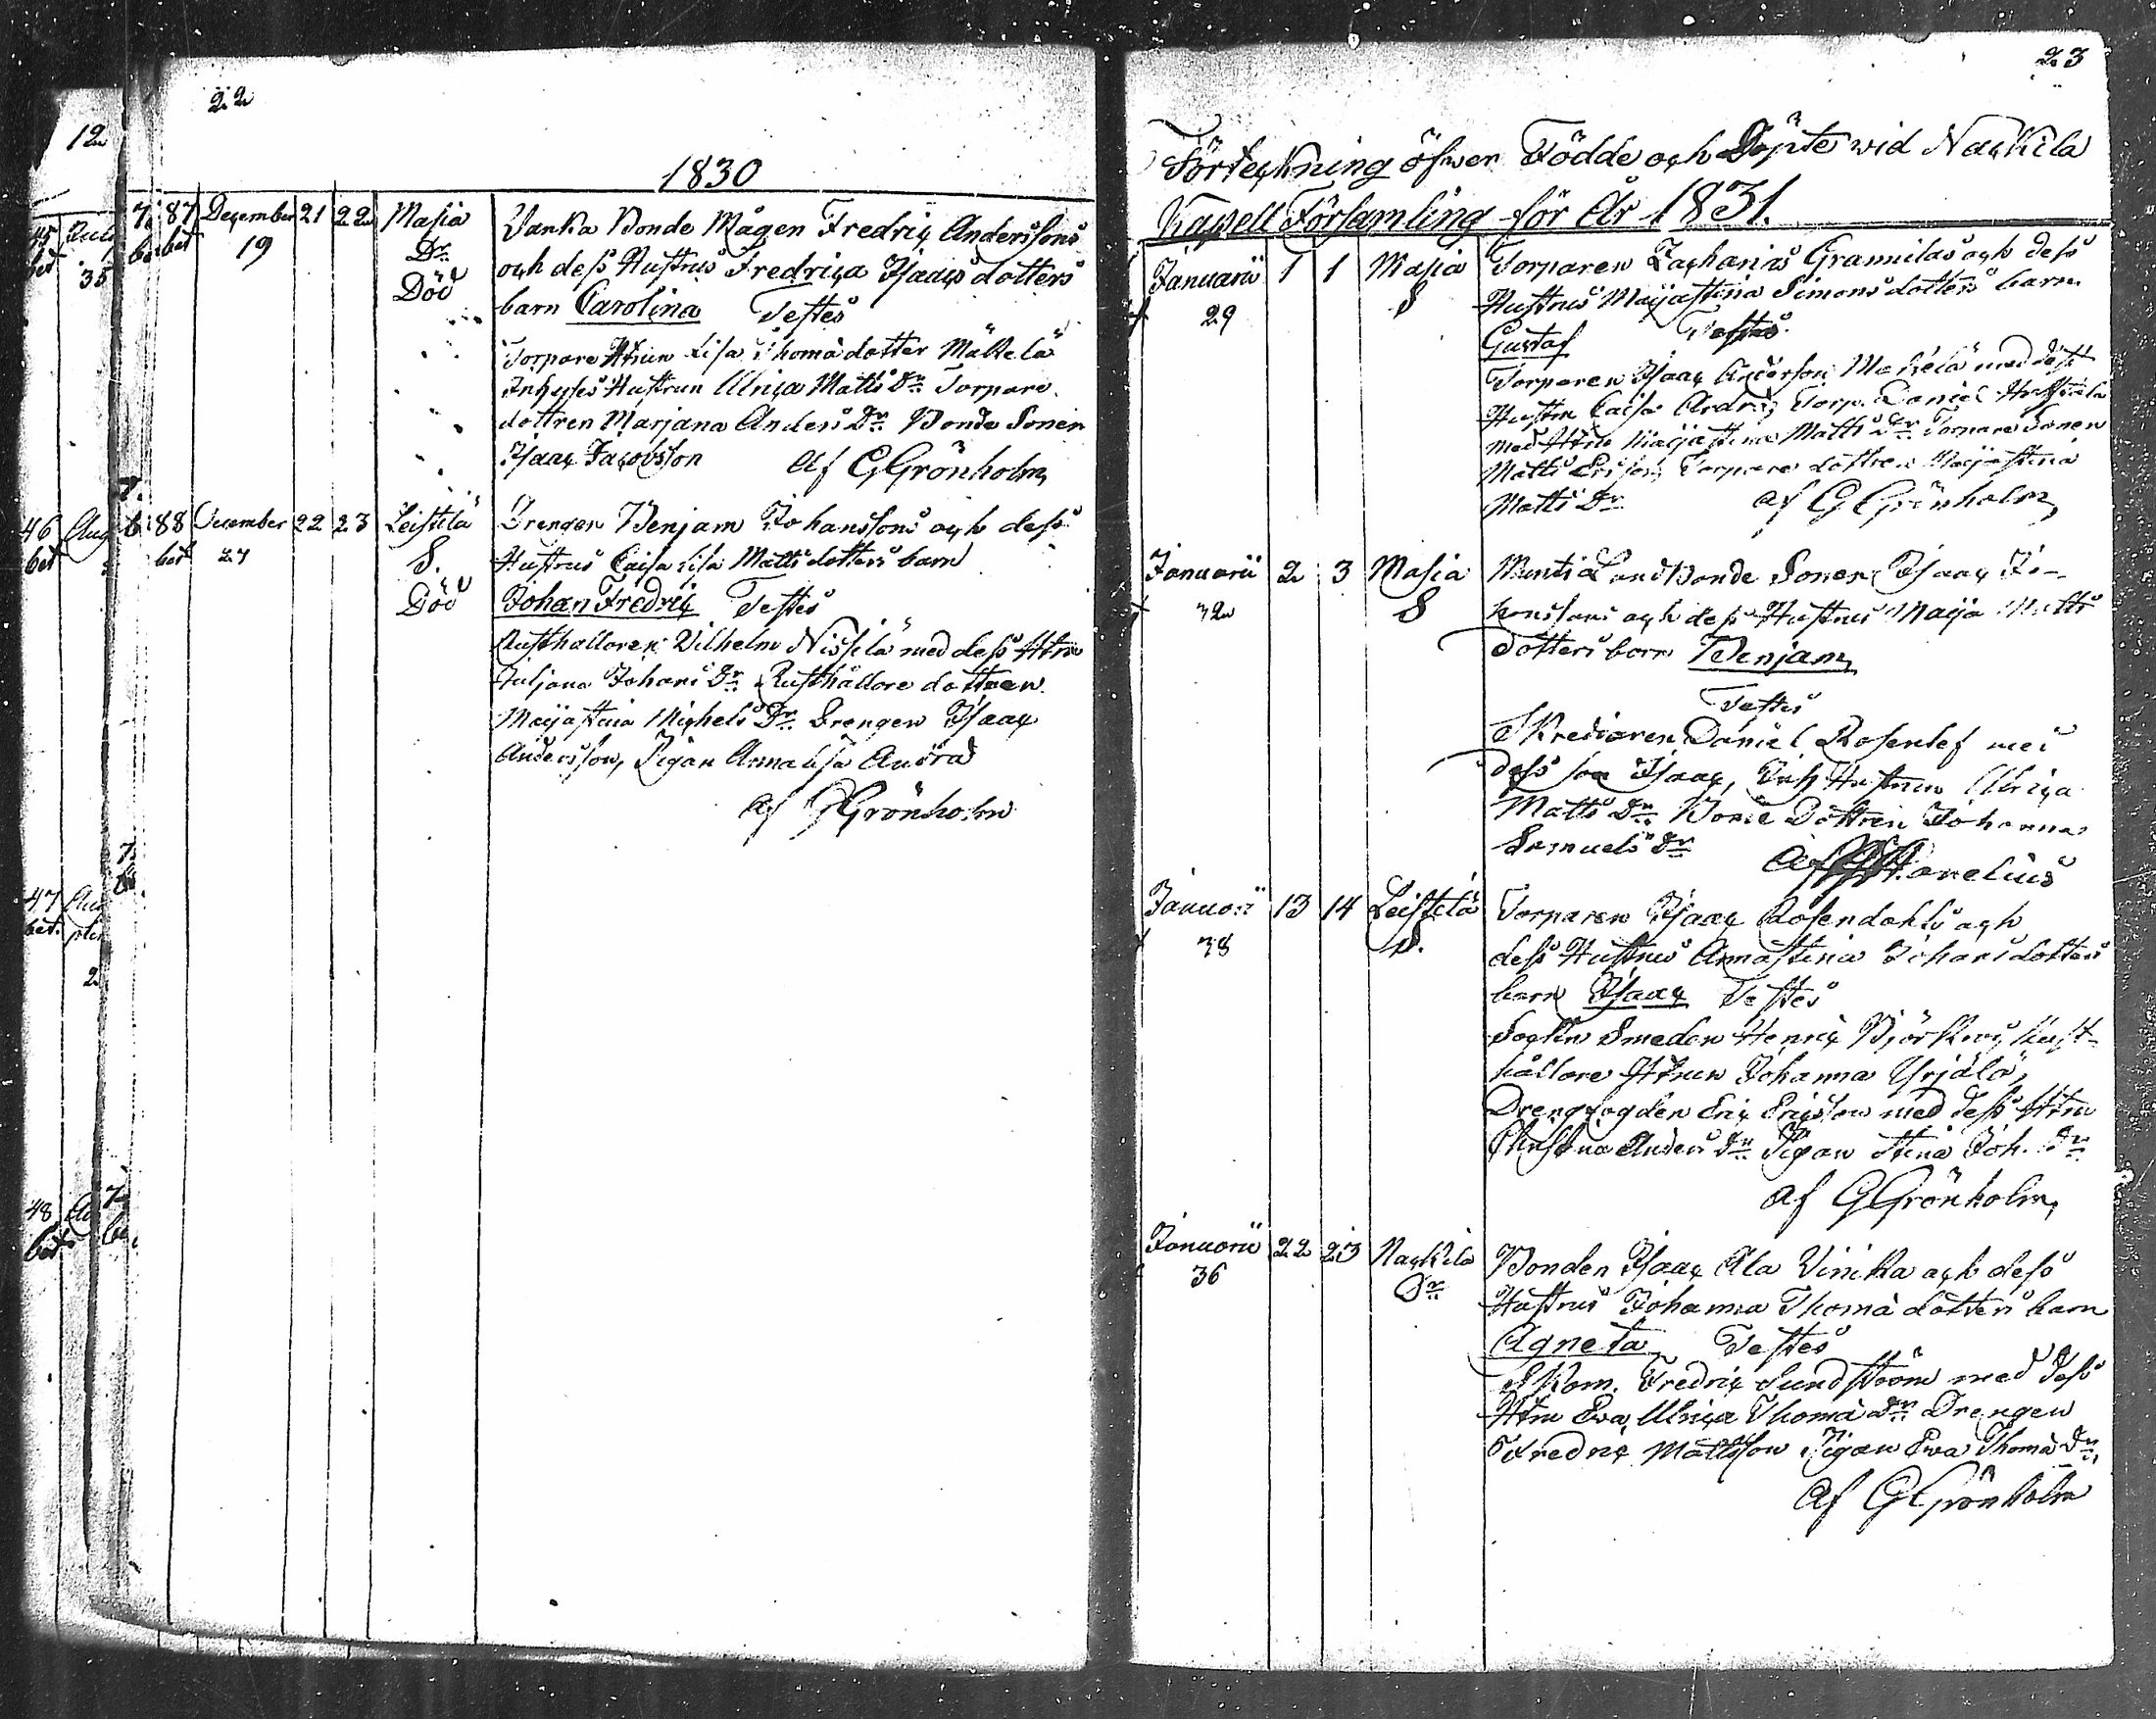 22
1830
87 December 21 22 Masia Vanka Bonde Mågen Fredric Anderssons
bet 19 Dr och dess Hustrus Fredrica Isaacs dotters
Död barn Carolina Testes
Torpare Hrun Lisa Thomä dotter Mältelä
Inhyses Hustrun Ulrica Matts Dr Torpare
dottren Marjana Anders Dr Bonde Sonen
Isaac Jacobsson af G Grönholm
88 December 22 23 Leistilä Drengen Benjam Johanssons och dess
bet 27 S. Hustrus Caisa Lisa Matts dotters barn
Död Johan Fredric Testes
Rusthallaren Vilhelm Nissilä med dess Hrn
Juljana Johans Dr Rusthållare dottren
Maija Stina Michels Dr Drengen Isaac
Andersson, Pigan Anna Lisa Andrad
af G Grönholm
12
35
46 Aug
bet
47
bet
2
48
bet
23
Förteckning öfwer Födde och Döpte wid Nackila
Kapell Församling för År 1831.
Januarii 1 1 Masia Torparen Zacharias Grannilas och dess
29 S Hustrus Maija Stina Simons dotters barn
Gustaf Testes
Torparen Isaac Anderson Mäkelä med dess
Hustru Caisa Torp. Daniel
med Hru Maija Stina Matts Dr Torpare Sonen
Matts Ericson, Torpare dottren Maija Stina
Matts Dr af G Grönholm
Januarii 2 3 Masia Landbonde Sonen Isaac Jo-
32 S hanssons och dess Hustrus Maija Matts
dotters barn Benjam
Testes
Skreddaren Daniel Rosenlef med
dess son Isaac, Inh Hustrun Ulrica
Matts Dr Bonde Dottren Johanna
Samuels Dr
Januari 13 14 Leistilä Torparen Isaac Rosendahls och
38 S. dess Hustrus Anna Stina Johans dotters
barn Isaac Testes
Sockn Smeden Henric Björkroos Rust-
hållare Hrun Johanna Yrjälä,
Drengfogden Eric Ericsson med dess Hrn
Christina Anders Dr Pigan Stina Joh. Dr
af G Grönholm
Januarii 22 23 Nackila Bonden Isaac Ala Vinikka och dess
36 Dr Hustrus Johanna Thomä dotters barn
Agneta Testes
Skom. Fredric Sundström med dess
Hrn Eva Ulrica Thomä Dr Drengen
Fredric Mattsson Pigan Ewa Thomä Dr
af G Grönholm